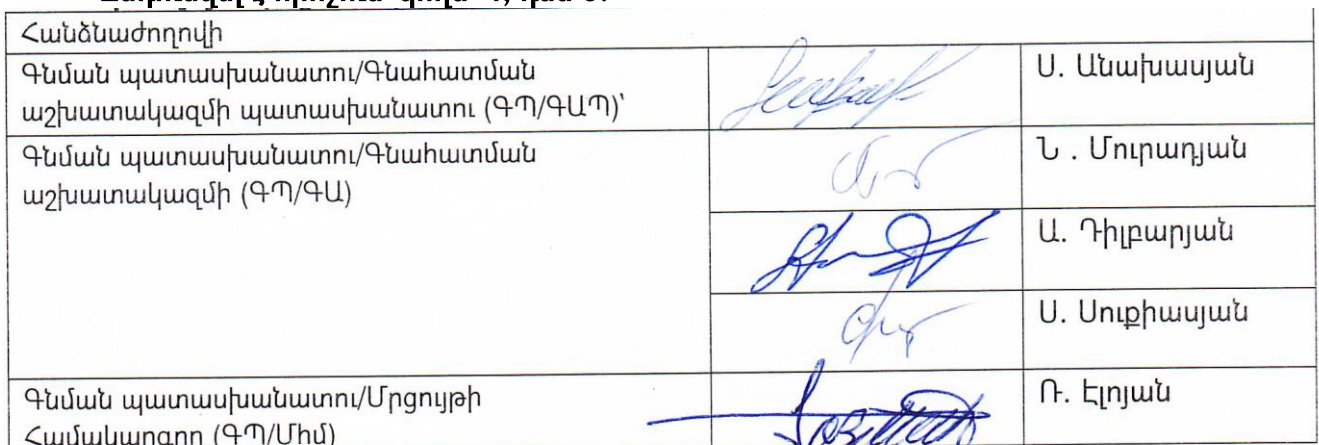 Հանձնաժողովի
Գնման պատասխանատու/Գնահատման
աշխատակազմի պատասխանատու (ԳՊ/ԳԱՊ)՝
Ս. Անախասյան
Գնման պատասխանատու/Գնահատման
աշխատակազմի (ԳՊ/ԳԱ)
Ն . Մուրադյան
Ա. Դիլբարյան
Ս. Սուքիասյան
Գնման պատասխանատու/Մրցույթի
Համակարգող (ԳՊ/Մհմ)
Ռ. Էլոյան